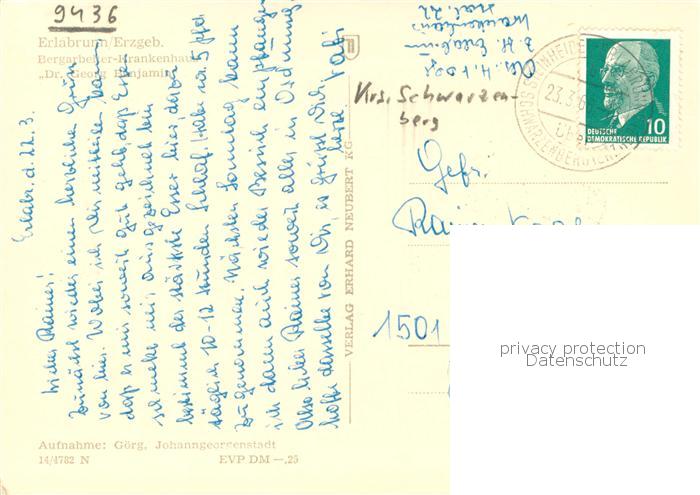 9436
Erlabrunn/Erzgeb.
Bergarbeiter-Krankenhaus
„Dr. Georg Benjamin"
Erlabr. d. 22. 3.
Lieber Rainer!
Zunächst wieder einen herzlichen Gruß
von hier. Wobei ich Dir mitteilen kann
daß es mir soweit gut geht, daß Essen
schmeckt mir ausgezeichnet bin
bestimmt der stärkste Esser hier davon
täglich 10-12 Stunden Schlaf. Habe ca. 5 Pfd
zugenommen. Nächsten Sonntag kann
ich dann auch wieder Besuch empfangen
Also lieber Rainer soweit alles in Ordnung,
hoffe dasselbe von Dir, es grüßt Dich
Vati
Aufnahme: Görg, Johanngeorgenstadt
14/4782 N EVP DM —,25
VERLAG ERHARD NEUBERT KG
Krankenhaus
Krs. Schwarzen-
berg
23.3.6
DEUTSCHE
DEMOKRATISCHE REPUBLIK
10
Gefr.
Rainer
1501
privacy protection
Datenschutz